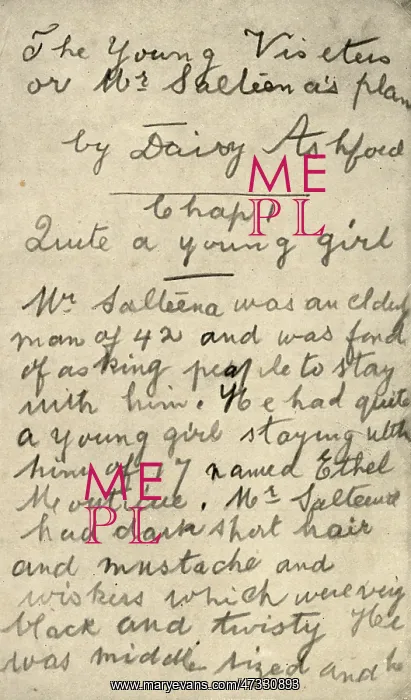 The Young Viseters
or Mr Salteena's plan
by Daisy Ashford
Chap I
Quite a young girl
Mr Salteena was an elderly
man of 42 and was fond
of asking peaple to stay
with him. He had quite
a young girl staying with
him of 17 named Ethel
Monticue. Mr Salteena
had dark short hair
and mustache and
wiskers which were very
black and twisty He
was middle sized and he
ME
PL
ME
PL
www.maryevans.com/47330893